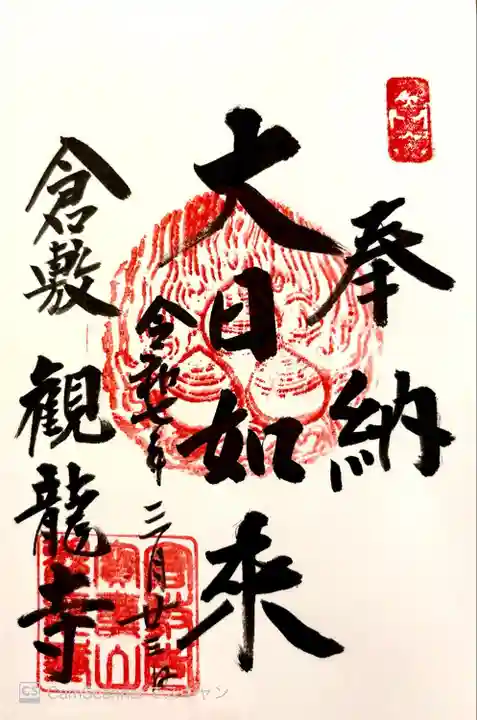 奉納
大日如来
令和七年 三月廿三日
倉敷 観龍寺
CS CamScanner でスキャン